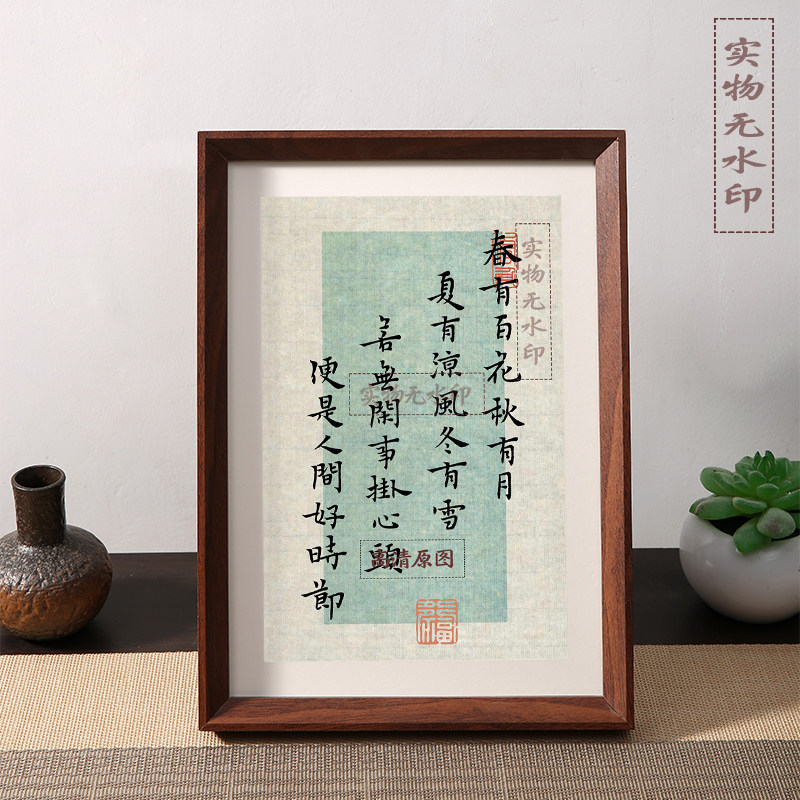 春有百花秋有月
夏有涼風冬有雪
若無閑事掛心頭
便是人間好時節
实物无水印
实物无水印
实物无水印
高清原图